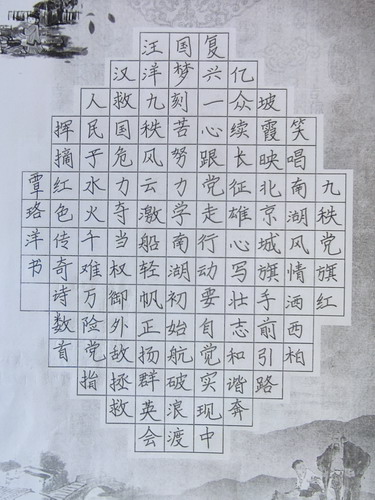 九秩党旗红
笑唱南湖风情洒西柏
坡霞映北京城旗手前引路
亿众续长征雄心写壮志和谐奔
复兴一心跟党走行动要自觉实现中
国梦刻苦努力学南湖初始航破浪渡
汪洋九秩风云激船轻帆正扬群英会
汉救国危力夺当权御外故拯救
人民于水火千难万险党指
挥摘红色传奇诗数首
覃珞洋书